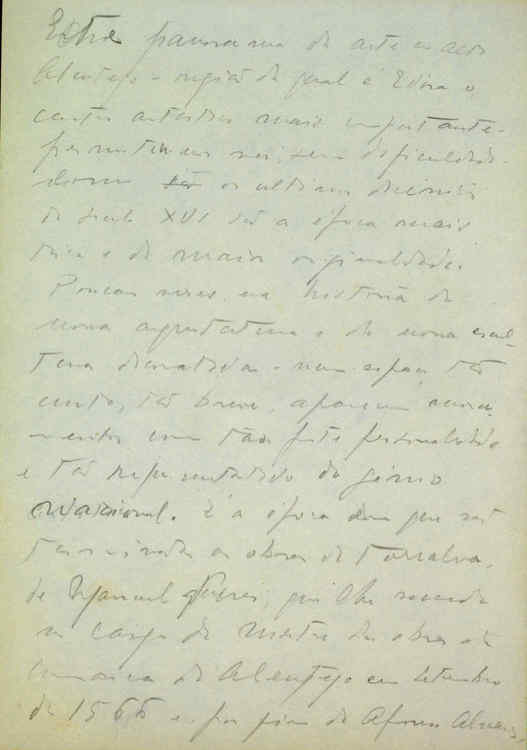 Este panorama da arte
Alentejo - região da qual é Évora o
centro artístico mais importante -
permite-nos ver, sem dificuldade,
os últimos decénios
do século XVI são a época mais
rica e de maior originalidade.
Poucas vezes na história da
nossa arquitectura e da nossa escul-
tura decorativa - num espaço tão
curto, tão breve, aparecem
com tão forte personalidade
e tão representativos do génio
nacional. É a época em que são
terminadas as obras de Torralva,
de Manuel Pires, que lhe sucede
no cargo de mestre das obras da
comarca do Alentejo em Setembro
de 1566 e, por fim de Afonso Alvares,